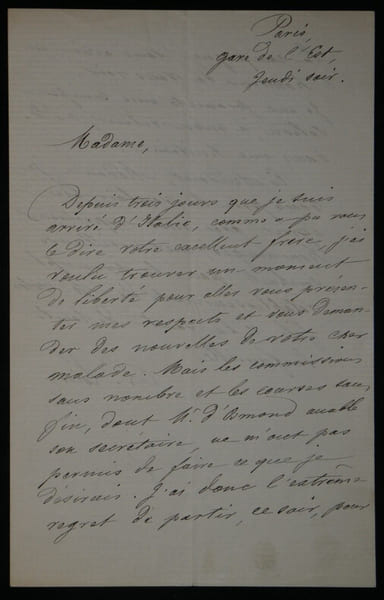 Paris,
gare de l'Est,
Jeudi soir.
Madame,
Depuis trois jours que je suis
arrivé d'Italie, comme a pu vous
le dire votre excellent frère, j'ai
voulu trouver un moment
de liberté pour aller vous présen-
ter mes respects et vous deman-
der des nouvelles de votre cher
malade. Mais les commissions
sans nombre et les courses sans
fin, dont Mr. d'Osmond accable
son secretaire, ne m'ont pas
permis de faire ce que je
désirais. J'ai donc l'extrême
regret de partir, ce soir, pour